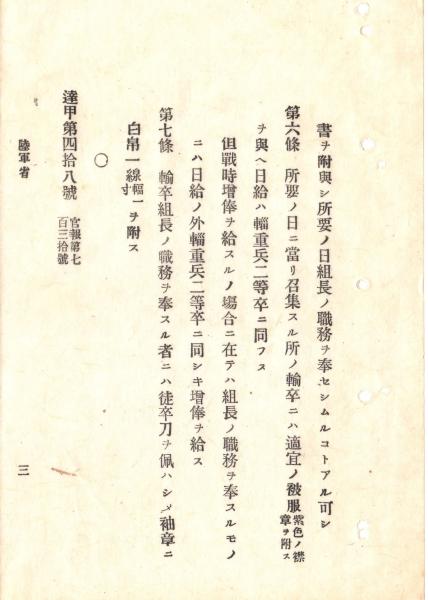 書ヲ附與シ所要ノ日組長ノ職務ヲ奉セシムルコトアル可シ
第六條 所要ノ日ニ當リ召集スル所ノ輸卒ニハ適宜ノ被服紫色ノ襟章ヲ附ス
ヲ與ヘ日給ハ輜重兵二等卒ニ同フス
但戰時增俸ヲ給スルノ塲合ニ在テハ組長ノ職務ヲ奉スルモノ
ニハ日給ノ外輜重兵二等卒ニ同シキ增俸ヲ給ス
第七條 輸卒組長ノ職務ヲ奉スル者ニハ徒卒刀ヲ佩ハシメ袖章ニ
白帛一線幅一寸ヲ附ス
〇
達甲第四拾八號 官報第七百三拾號
陸軍省 三